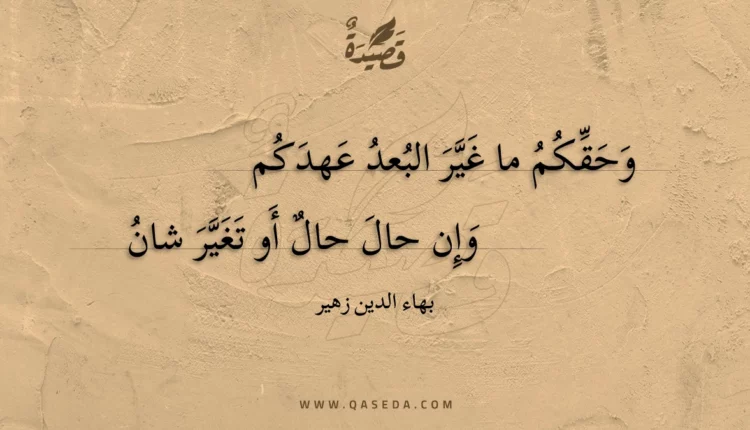 قَصِيدَةٌ
وَحَقِّكُمُ ما غَيَّرَ البُعدُ عَهدَكُم
وَإِن حالَ حالٌ أَو تَغَيَّرَ شانُ
بهاء الدين زهير
WWW.QASEDA.COM